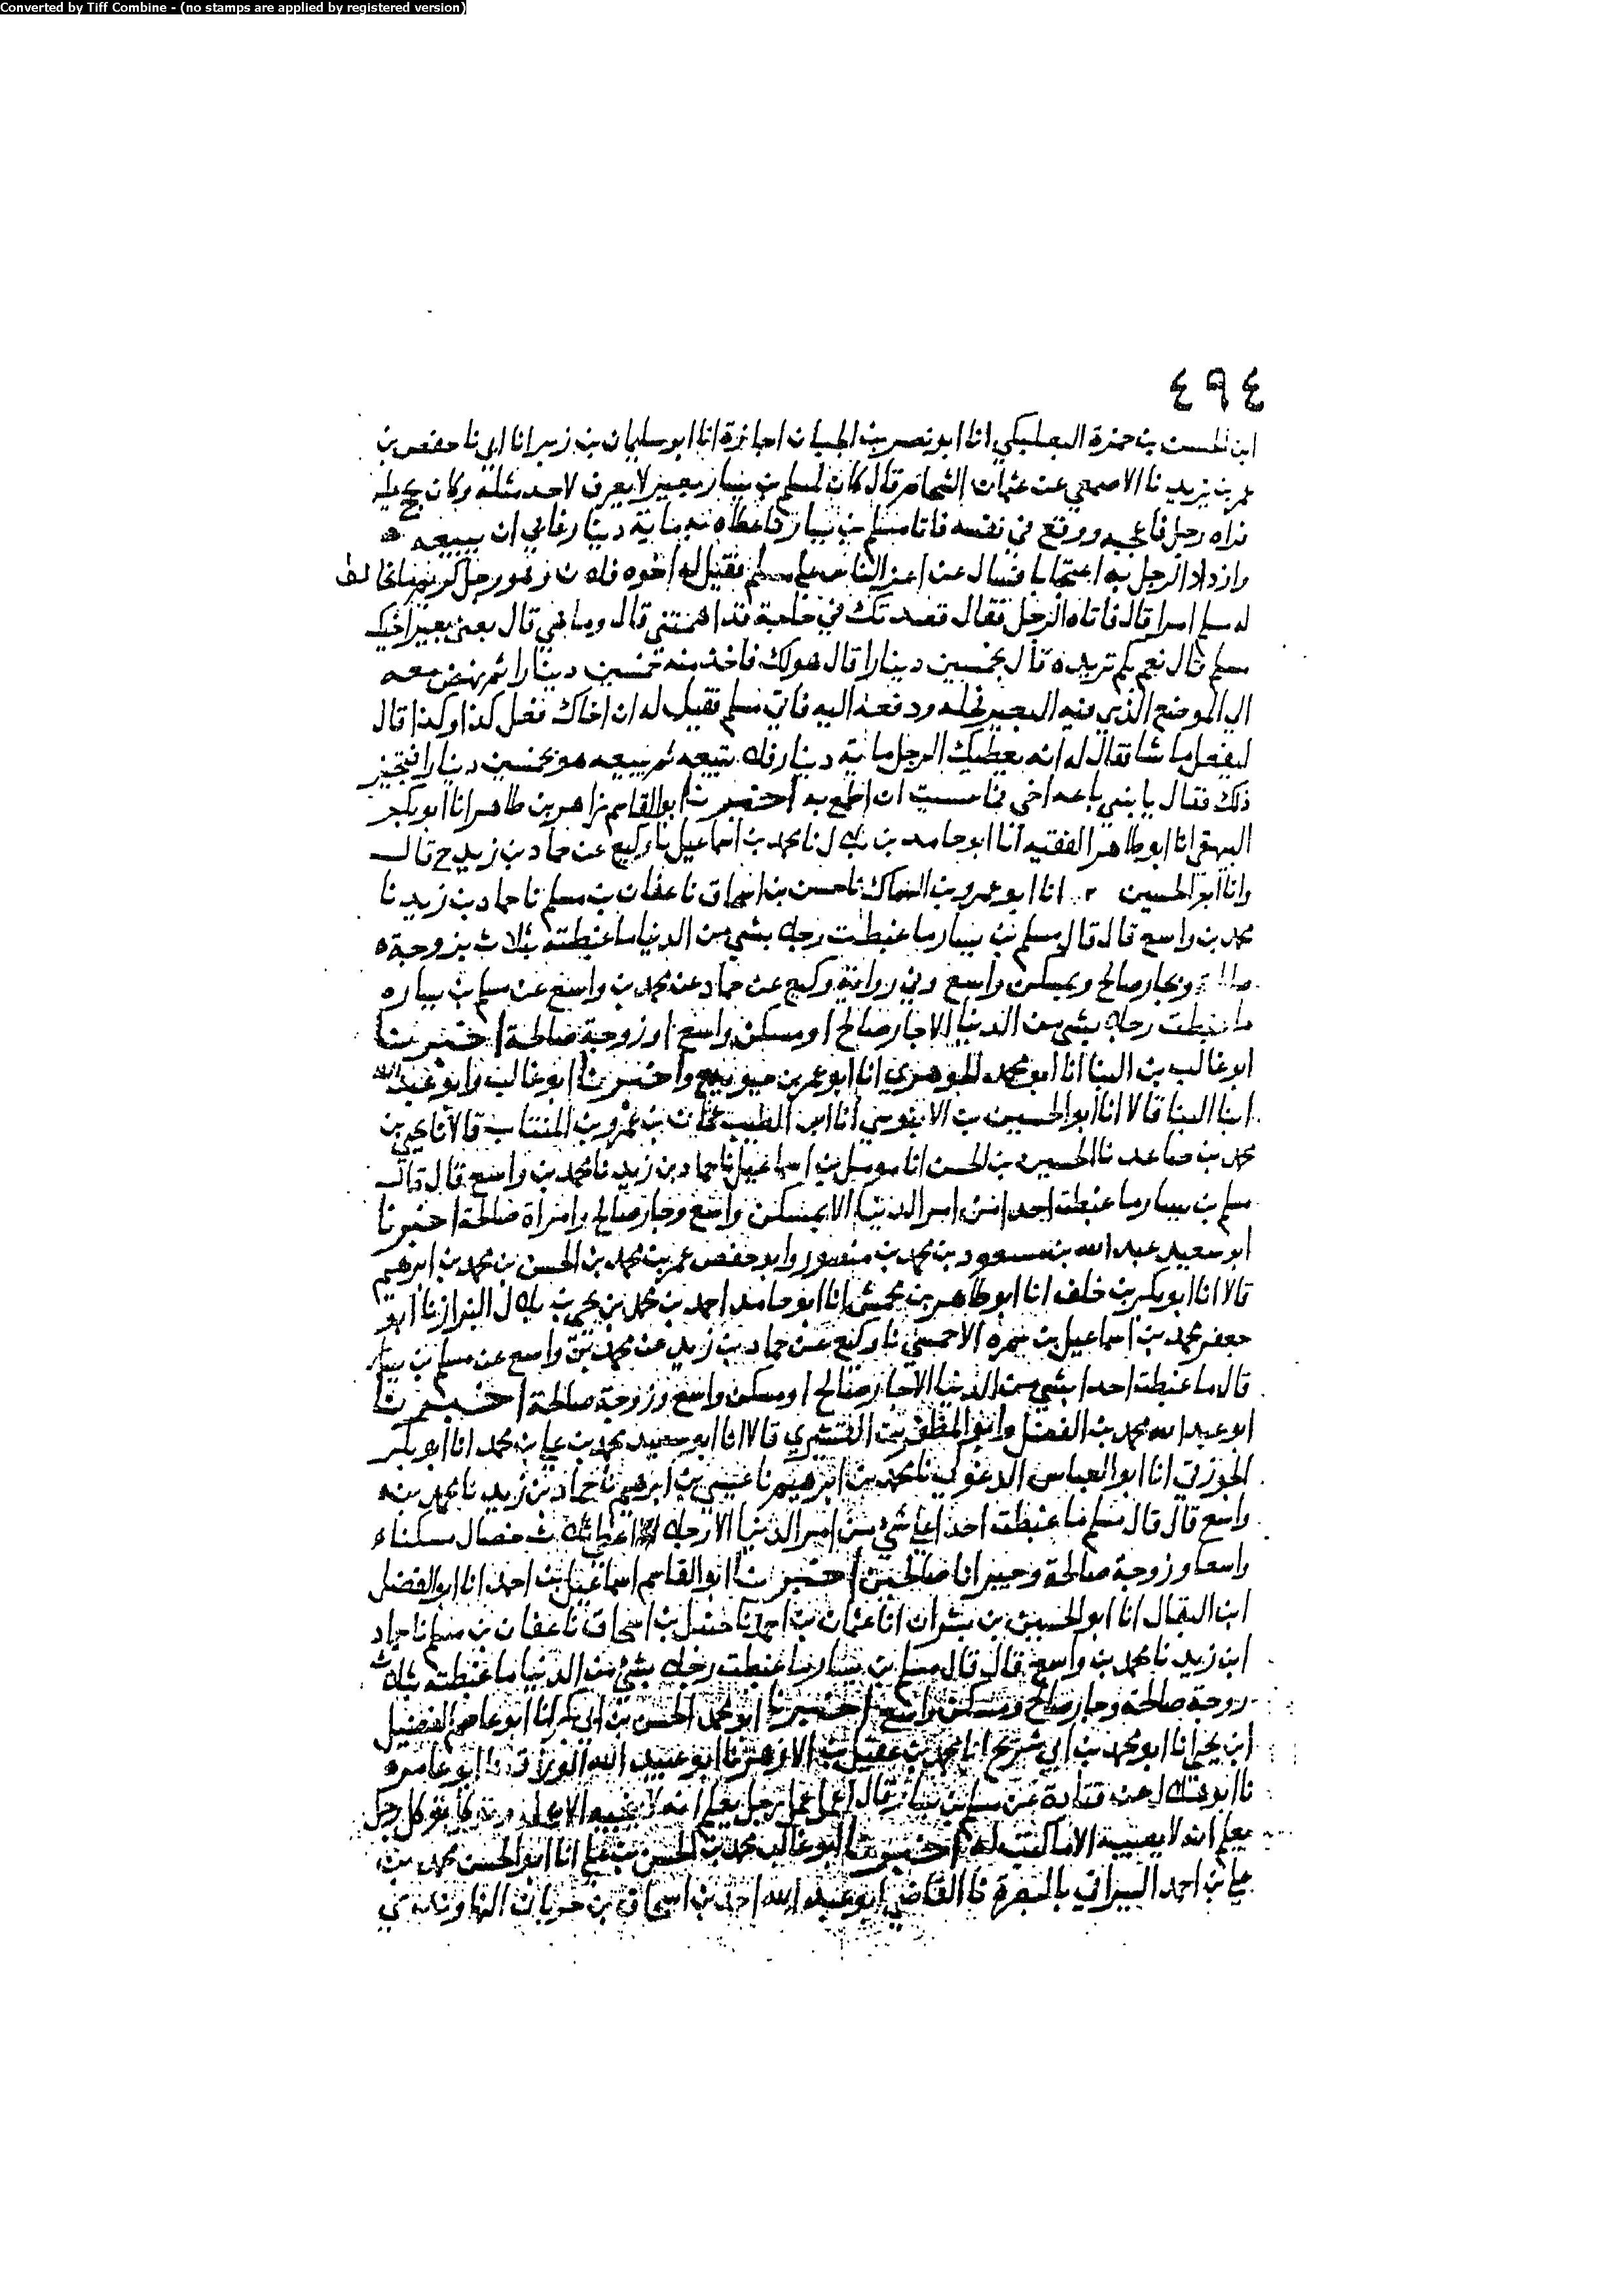 Converted by Tiff Combine - (no stamps are applied by registered version)
٤٩٤
ابن الحسن بن حمزة البعلبكي انا ابو نصر بن الجبان اجازة انا ابو سليمان بن زبر انا ابي نا حفص بن
عمر بن يزيد نا الاصمعي عن عثمان الشحام قال كان لمسلم بن يسار بعير لا يعرف لاحد مثله وكان يحج عليه
فراه رجل فاعجبه ووقع في نفسه فاتا مسلم بن يسار فاعطاه به مايه دينار فابي ان يبيعه
وازداد الرجل به اعجابا فسال عن اعز الناس علي مسلم فقيل له اخوه فلان وهو رجل كريم لا يخالف
له مسلم امرا قال فاتاه الرجل فقال قصدتك في حاجة قد اهمتني قال وما هي قال بعني بعير اخيك
مسلم قال نعم بكم تريده قال بخمسين دينارا قال هو لك فاخذ منه خمسين دينارا ثم نهض معه
الي الموضع الذي فيه البعير فحله ودفعه اليه فاتي مسلم فقيل له ان اخاك فعل كذا وكذا قال
ليفعل ما شا فقال له انه يعطيك الرجل ماية دينار فلا تبيعه ثم يبيعه هو بخمسين دينارا فتجيز
ذلك فقال يا بني باعه اخي فما حسبت ان اطمع به اخبرنا ابو القاسم زاهر بن طاهر انا ابو بكر
البيهقي انا ابو طاهر الفقيه انا ابو حامد بن بلال نا محمد بن اسماعيل نا وكيع عن حماد بن زيد ح قال
وانا ابو الحسين انا ابو عمرو بن السماك نا حسن بن اسحاق نا عفان بن مسلم نا حماد بن زيد نا
محمد بن واسع قال قال مسلم بن يسار ما غبطت رجلا بشي من الدنيا ما غبطته بثلاث بزوجة
صالحة وبجار صالح وبمسكن واسع وفي رواية وكيع عن حماد عن محمد بن واسع عن مسلم بن يسار
ما غبطت رجلا بشي من الدنيا الا جار صالح او مسكن واسع او زوجة صالحة اخبرنا
ابو غالب بن البنا انا ابو محمد الجوهري انا ابو عمر بن حيويه ح واخبرنا ابو غالب وابو عبد الله
ابنا البنا قالا انا ابو الحسين بن الابنوسي انا ابو الطيب عثمان بن عمرو بن المنتاب قالا نا يحيي بن
محمد بن صاعد نا الحسين بن الحسن انا مومل بن اسماعيل نا حماد بن زيد نا محمد بن واسع قال قال
مسلم بن يسار ما غبطت احدا من امر الدنيا الا بمسكن واسع وجار صالح وامراة صالحة اخبرنا
ابو سعيد عبد الله بن مسعود بن محمد بن منصور وابو حفص عمر بن محمد بن الحسن بن محمد بن ابرهيم
قالا انا ابو بكر بن خلف انا ابو طاهر بن محمش انا ابو حامد احمد بن محمد بن يحيي بن بلال البزاز نا ابو
جعفر محمد بن اسماعيل بن سمره الاحمسي نا وكيع عن حماد بن زيد عن محمد بن واسع عن مسلم بن يسار
قال ما غبطت احدا بشي من الدنيا الا جار صالح او مسكن واسع وزوجة صالحة اخبرنا
ابو عبد الله محمد بن الفضل وابو المظفر بن القشيري قالا انا ابو سعيد محمد بن علي بن محمد انا ابو بكر
الجوزقي انا ابو العباس الدغولي نا محمد بن ابرهيم نا عيسي بن ابرهيم نا حماد بن زيد نا محمد بن
واسع قال قال مسلم ما غبطت احدا علي شي من امر الدنيا الا رجلا اعطي ثلاث خصال مسكنا
واسعا وزوجة صالحة وجيرانا صالحين اخبرنا ابو القاسم اسماعيل بن احمد انا ابو الفضل
ابن البقال انا ابو الحسين بن بشران انا عثمان بن احمد نا حنبل بن اسحاق نا عفان بن مسلم نا حماد
ابن زيد نا محمد بن واسع قال قال مسلم بن يسار ما غبطت رجلا بشي من الدنيا ما غبطته بثلاث
زوجة صالحة وجار صالح ومسكن واسع اخبرنا ابو محمد الحسن بن ابي بكر انا ابو عاصم الفضيل
ابن يحيي انا ابو محمد بن ابي شريح انا محمد بن عقيل بن الازهر نا ابو عبيد الله الوراق نا ابو عامر
نا ابو هلال عن قتادة عن مسلم بن يسار قال اعمل عمل رجل يعلم انه لا ينجيه الا عمله وتوكل توكل رجل
يعلم انه لا يصيبه الا ما كتب له اخبرنا ابو غالب محمد بن الحسن بن علي انا ابو الحسن محمد بن
علي بن احمد السيرافي بالبصرة نا القاضي ابو عبد الله احمد بن اسحاق بن خربان النهاوندي